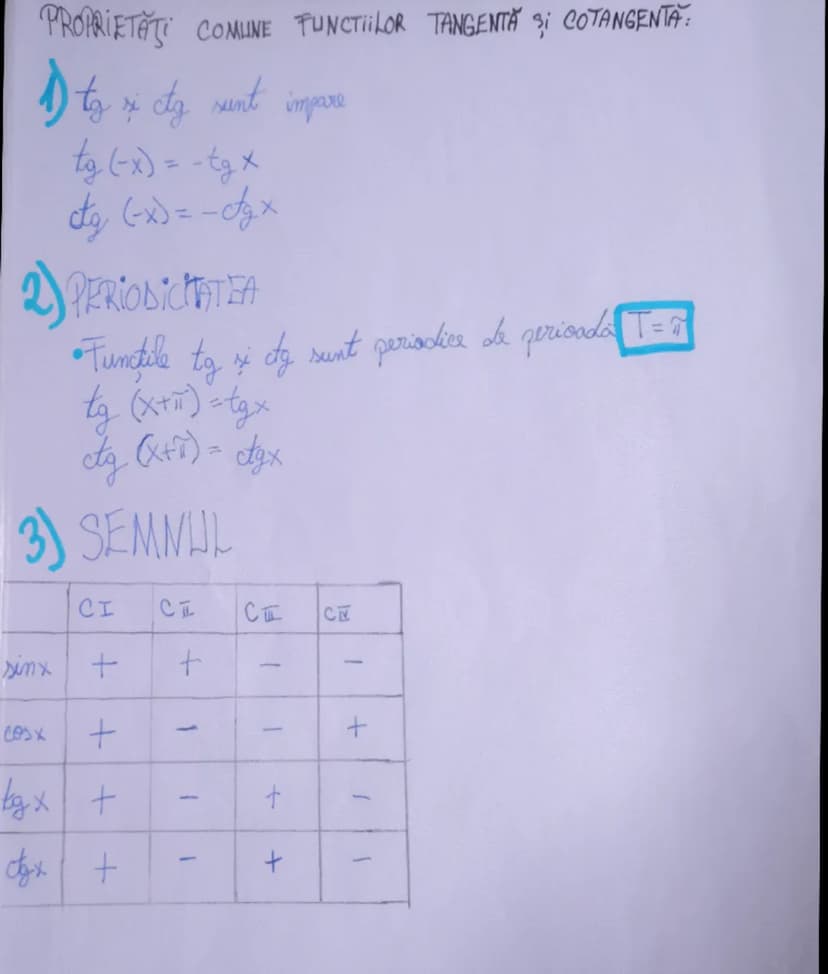 PROPRIETĂȚI COMUNE FUNCTIILOR TANGENTĂ și COTANGENTĂ:
1) tg și ctg sunt impare
tg (-x) = -tg x
ctg (-x) = -ctg x
2) PERIODICITATEA
•Funcțiile tg și ctg sunt periodice de perioadă T=π
tg (x+π) = tgx
ctg (x+π) = ctgx
3) SEMNUL
C I C II C III C IV
sinx + + - -
cosx + - - +
tg x + - + -
ctgx + - + -